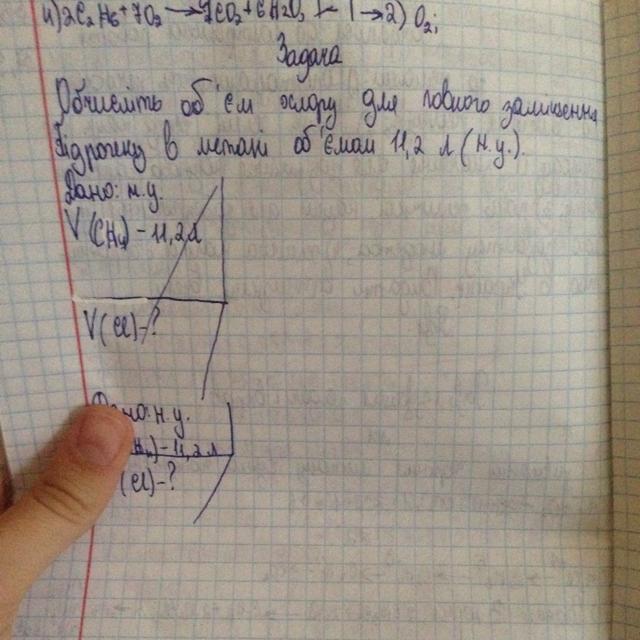 и) 2C₂H₆ + 7O₂ → 4CO₂ + 6H₂O;
Задача
Обчисліть об'єм хлору для повного заміщення
Гідрогену в метані об'ємом 11,2 л (н.у.).
Дано: н.у.
V(CH₄) - 11,2 л
V(Cl) - ?
Дано: н.у.
) - 11,2 л
(Cl) - ?